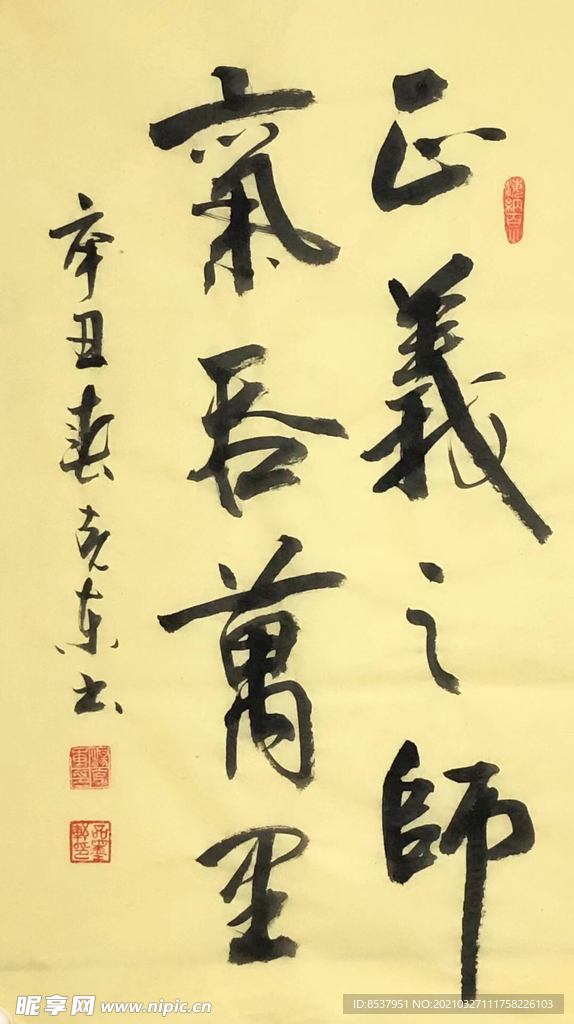 正義之師
氣吞萬里
辛丑春克東书
昵享网 www.nipic.cn
ID:8537951 NO:20210327111758226103